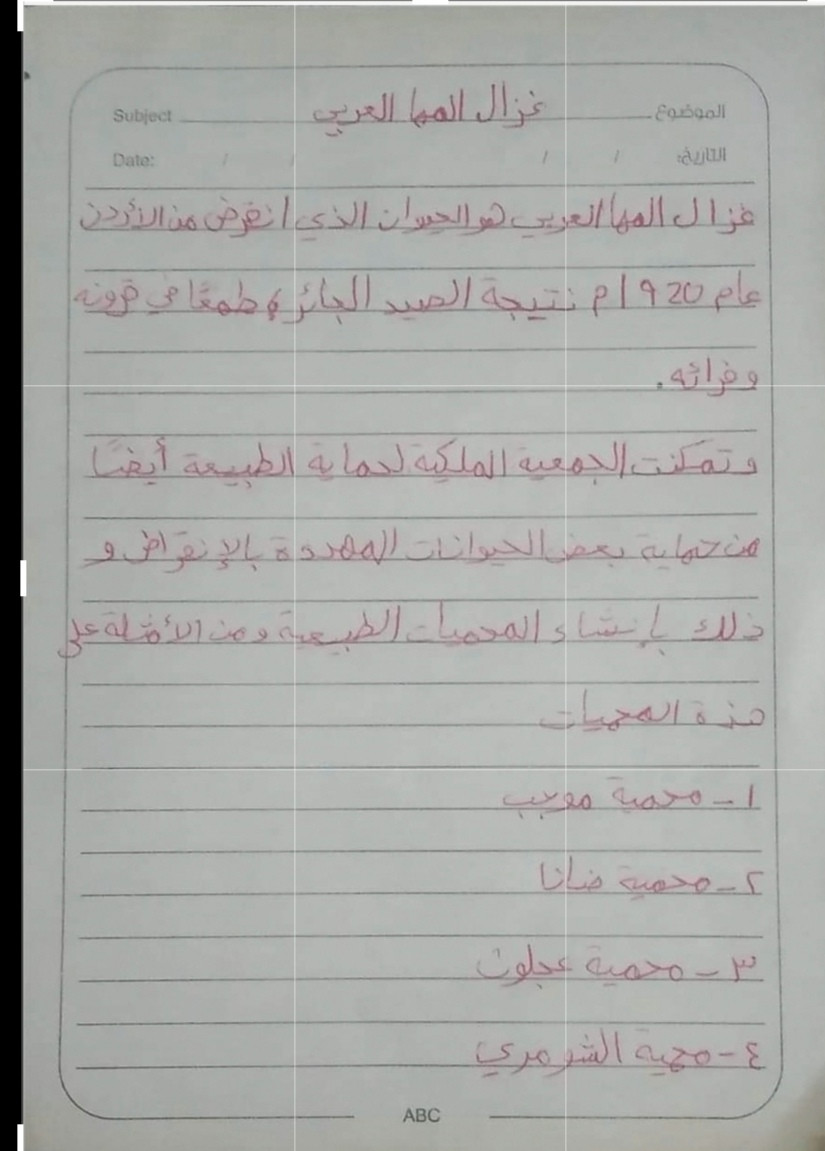 Subject غزال المها العربي الموضوع
Date: / / / / التاريخ:
غزال المها العربي هو الحيوان الذي انقرض من الأردن
عام 1920م نتيجة الصيد الجائر، طمعًا في قرونه
وفرائه.
وتمكنت الجمعية الملكية لحماية الطبيعة أيضًا
من حماية بعض الحيوانات المهددة بالإنقراض و
ذلك بإنشاء المحميات الطبيعية ومن الأمثلة على
هذة المحميات
١- محمية موجب
٢- محمية ضانا
٣- محمية عجلون
٤- محمية الشومري
ABC